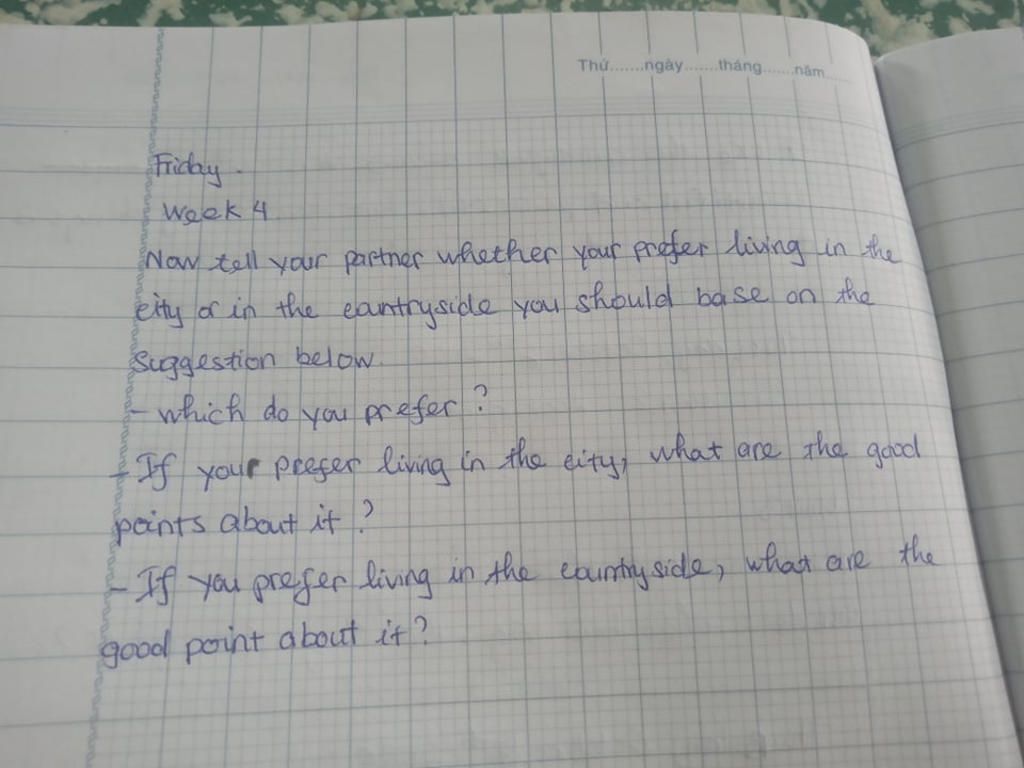 Thứ.......ngày.......tháng.......năm......
Friday.
Week 4
Now tell your partner whether your prefer living in the
city or in the countryside you should base on the
suggestion below.
- which do you prefer?
- If your prefer living in the city, what are the good
points about it?
- If you prefer living in the countryside, what are the
good point about it?